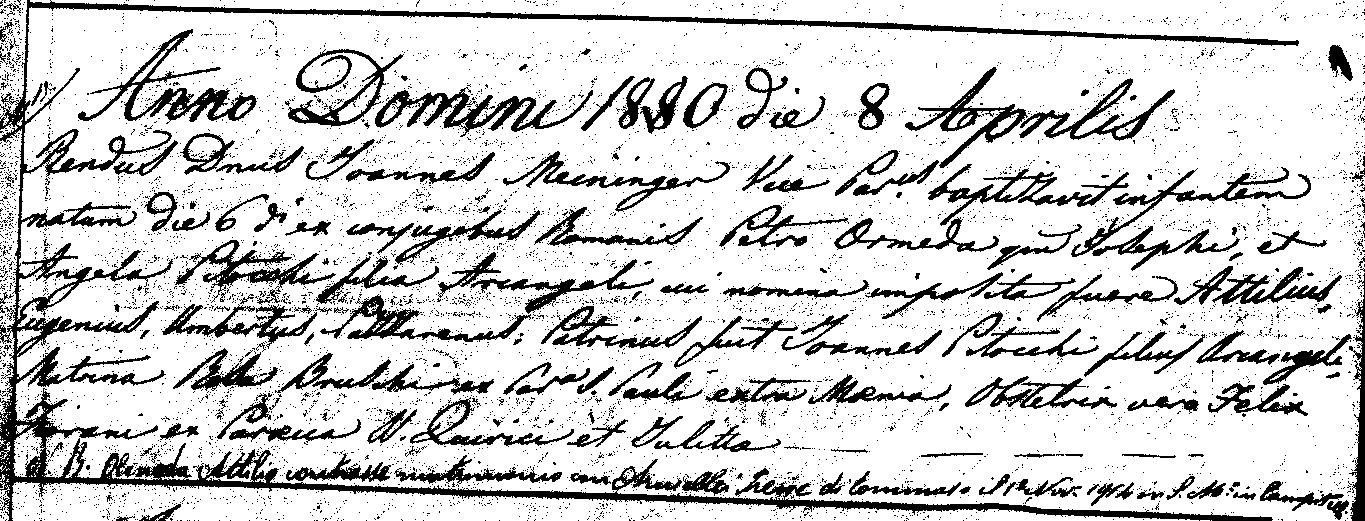 Anno Domini 1880 die 8 Aprilis
Rendus Dnus Ioannes Meininger Vice Par.us baptizavit infantem
natum die 6 di ex conjugibus Romanis Petro Ormeda qm Iosephi, et
Angela Pitocchi filia Arcangeli, cui nomina imposita fuere Attilius,
Eugenius, Umbertus, Patrinus fuit Ioannes Pitocchi filius Arcangeli,
Matrina Bruschi ex Par.a S. Pauli extra Mænia, Obstetrix vero Felix
ex Parecia SS. Quirici et Iulitta
Attilio matrimonio con Irene di Tommaso il in S. Ma. in